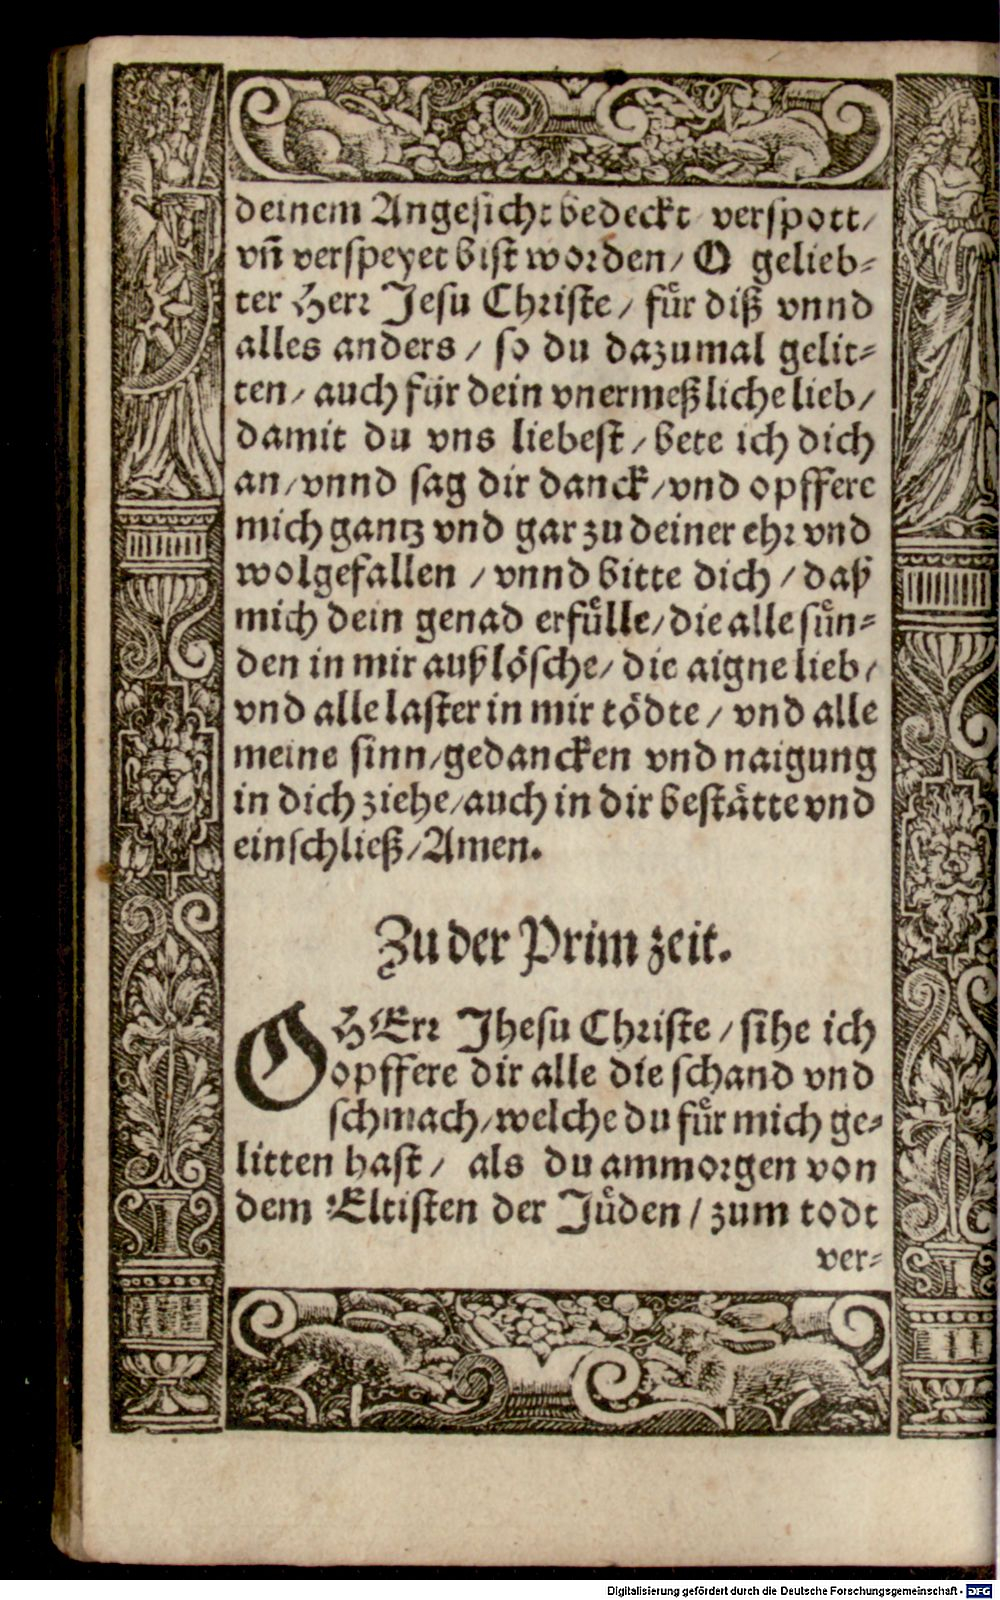 deinem Angesicht bedeckt verspott/
vñ verspeyet bist worden/ O gelieb-
ter Herr Jesu Christe/ fuͤr diß vnnd
alles anders/ so du dazumal gelit-
ten/ auch für dein vnermeßliche lieb/
damit du vns liebest/ bete ich dich
an/ vnnd sag dir danck/ vnd opffere
mich gantz vnd gar zu deiner ehr vnd
wolgefallen/ vnnd bitte dich/ daß
mich dein genad erfuͤlle/ die alle suͤn-
den in mir außlösche/ die aigne lieb/
vnd alle laster in mir tödte/ vnd alle
meine sinn/ gedancken vnd naigung
in dich ziehe/ auch in dir bestätte vnd
einschließ/ Amen.
Zu der Prim zeit.
O HErr Jhesu Christe/ sihe ich
opffere dir alle die schand vnd
schmach/ welche du fuͤr mich ge-
litten hast/ als du am morgen von
dem Eltisten der Juͤden/ zum todt
ver-
Digitalisierung gefördert durch die Deutsche Forschungsgemeinschaft - DFG